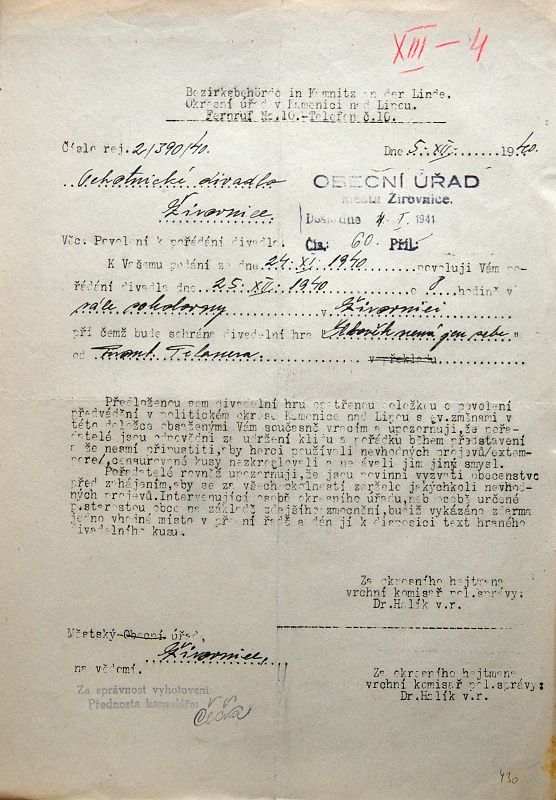 XIII – 4
Bezirksbehörde in Kamnitz an der Linde.
Okresní úřad v Kamenici nad Lipou.
Fernruf No.10.-Telefon č.10.
Číslo rej. 2/390/40.
Dne 5. XII. 1940.
Ochotnické divadlo
Žirovnice.
OBECNÍ ÚŘAD
města Žirovnice.
Došlo dne 4. I. 1941
Čís.: 60 Příl.:
Věc. Povolení k pořádání divadla.
K Vašemu podání ze dne 24. XI. 1940 povoluji Vám po-
řádání divadla dne 25. XII. 1940 o 8 hodině v
sále sokolovny v Žirovnici
při čemž bude sehrána divadelní hra "Člověk nemá jen sebe"
od Frant. v překladu
Předloženou sem divadelní hru opatřenou doložkou o povolení
předvádění v politickém okrese Kamenice nad Lipou s ev.změnami v
této doložce obsaženými Vám současně vracím a upozorňuji,že pořa-
datelé jsou odpovědni za udržení klidu a pořádku během představení
a že nesmí připustiti,aby herci používali nevhodných projevů/extem-
pore/,censurované kusy nezkreslovali a nedávali jim jiný smysl.
Pořadatele rovněž upozorňuji,že jsou povinni vyzvati obecenstvo
před zahájením,aby se za všech okolností zdrželo jakýchkoli nevhod-
ných projevů.Intervenující osobě okresního úřadu,neb osobě určené
p.starostou obce na základě zdejšího zmocnění,budiž vykázáno zdarma
jedno vhodné místo v přední řadě a dán jí k disposici text hraného
divadelního kusu.
Za okresního hejtmana
vrchní komisař pol.správy:
Dr.Halík v.r.
Městský-Obecní úřad,
Žirovnice,
na vědomí.
Za správnost vyhotovení:
Přednosta kanceláře:
Za okresního hejtmana
vrchní komisař pol.správy:
Dr.Halík v.r.
430